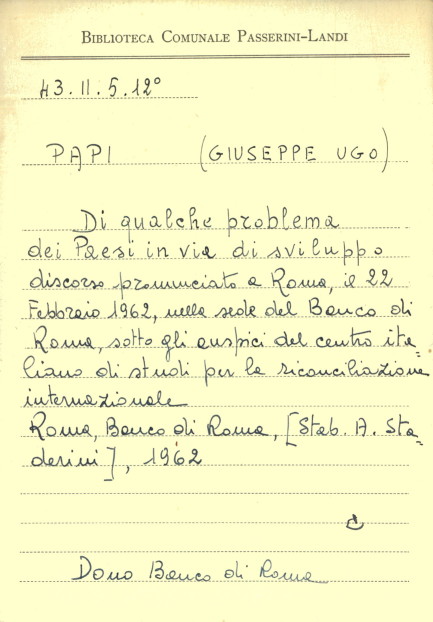 BIBLIOTECA COMUNALE PASSERINI-LANDI
43.II.5.12°
PAPI (GIUSEPPE UGO)
Di qualche problema
dei Paesi in via di sviluppo
discorso pronunciato a Roma, il 22
Febbraio 1962, nella sede del Banco di
Roma, sotto gli auspici del centro ita=
liano di studi per la riconciliazione
internazionale
Roma, Banco di Roma, [Stab. A. Sta=
derini], 1962
Dono Banco di Roma